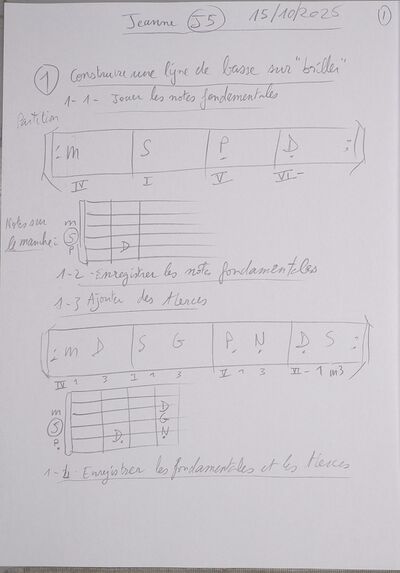 Jeanne J5 15/10/2025 1
1 Construire une ligne de basse sur "briller"
1-1- Jouer les notes fondamentales
Partition
: m S P D :
IV I V VI-
Notes sur
le manche :
m
S
P
D
1-2- Enregistrer les notes fondamentales
1-3 Ajouter des tierces
: m D S G P N D S :
IV 1 3 I 1 3 V 1 3 VI- 1 m3
m D
S G
P D N
1-4- Enregistrer les fondamentales et les tierces